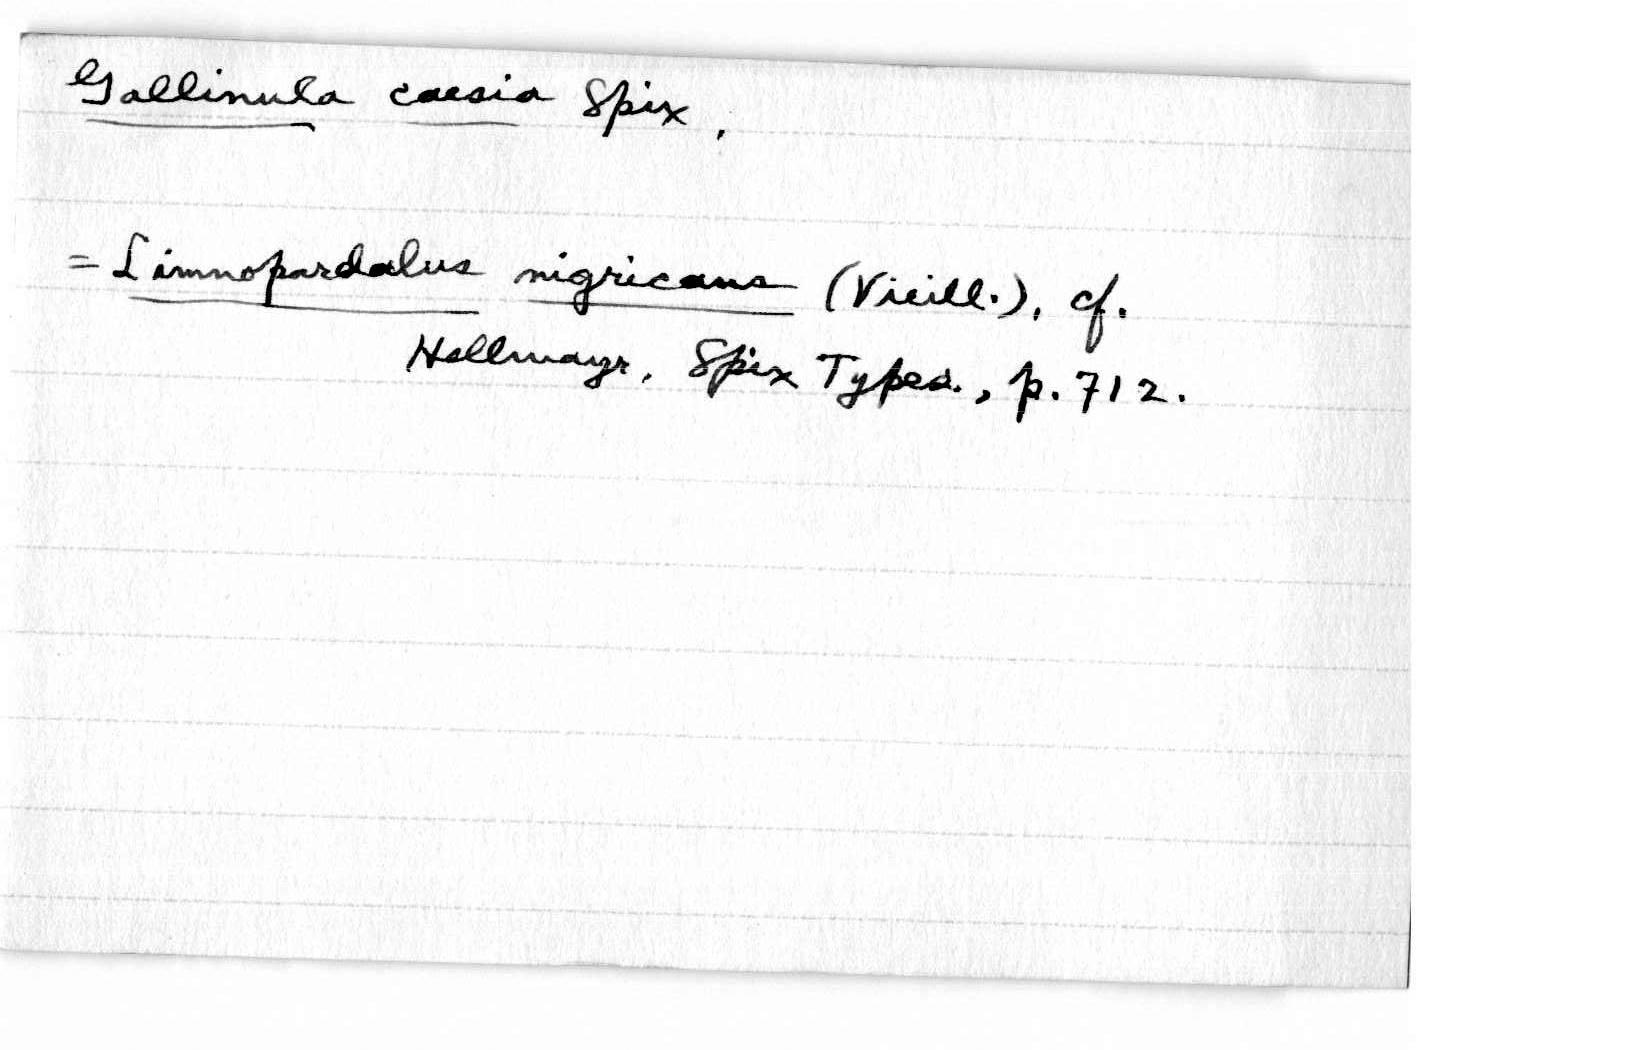 Gallinula caesia Spix.
= Limnopardalus nigricans (Vieill.), cf.
Hellmayr, Spix Types., p. 712.